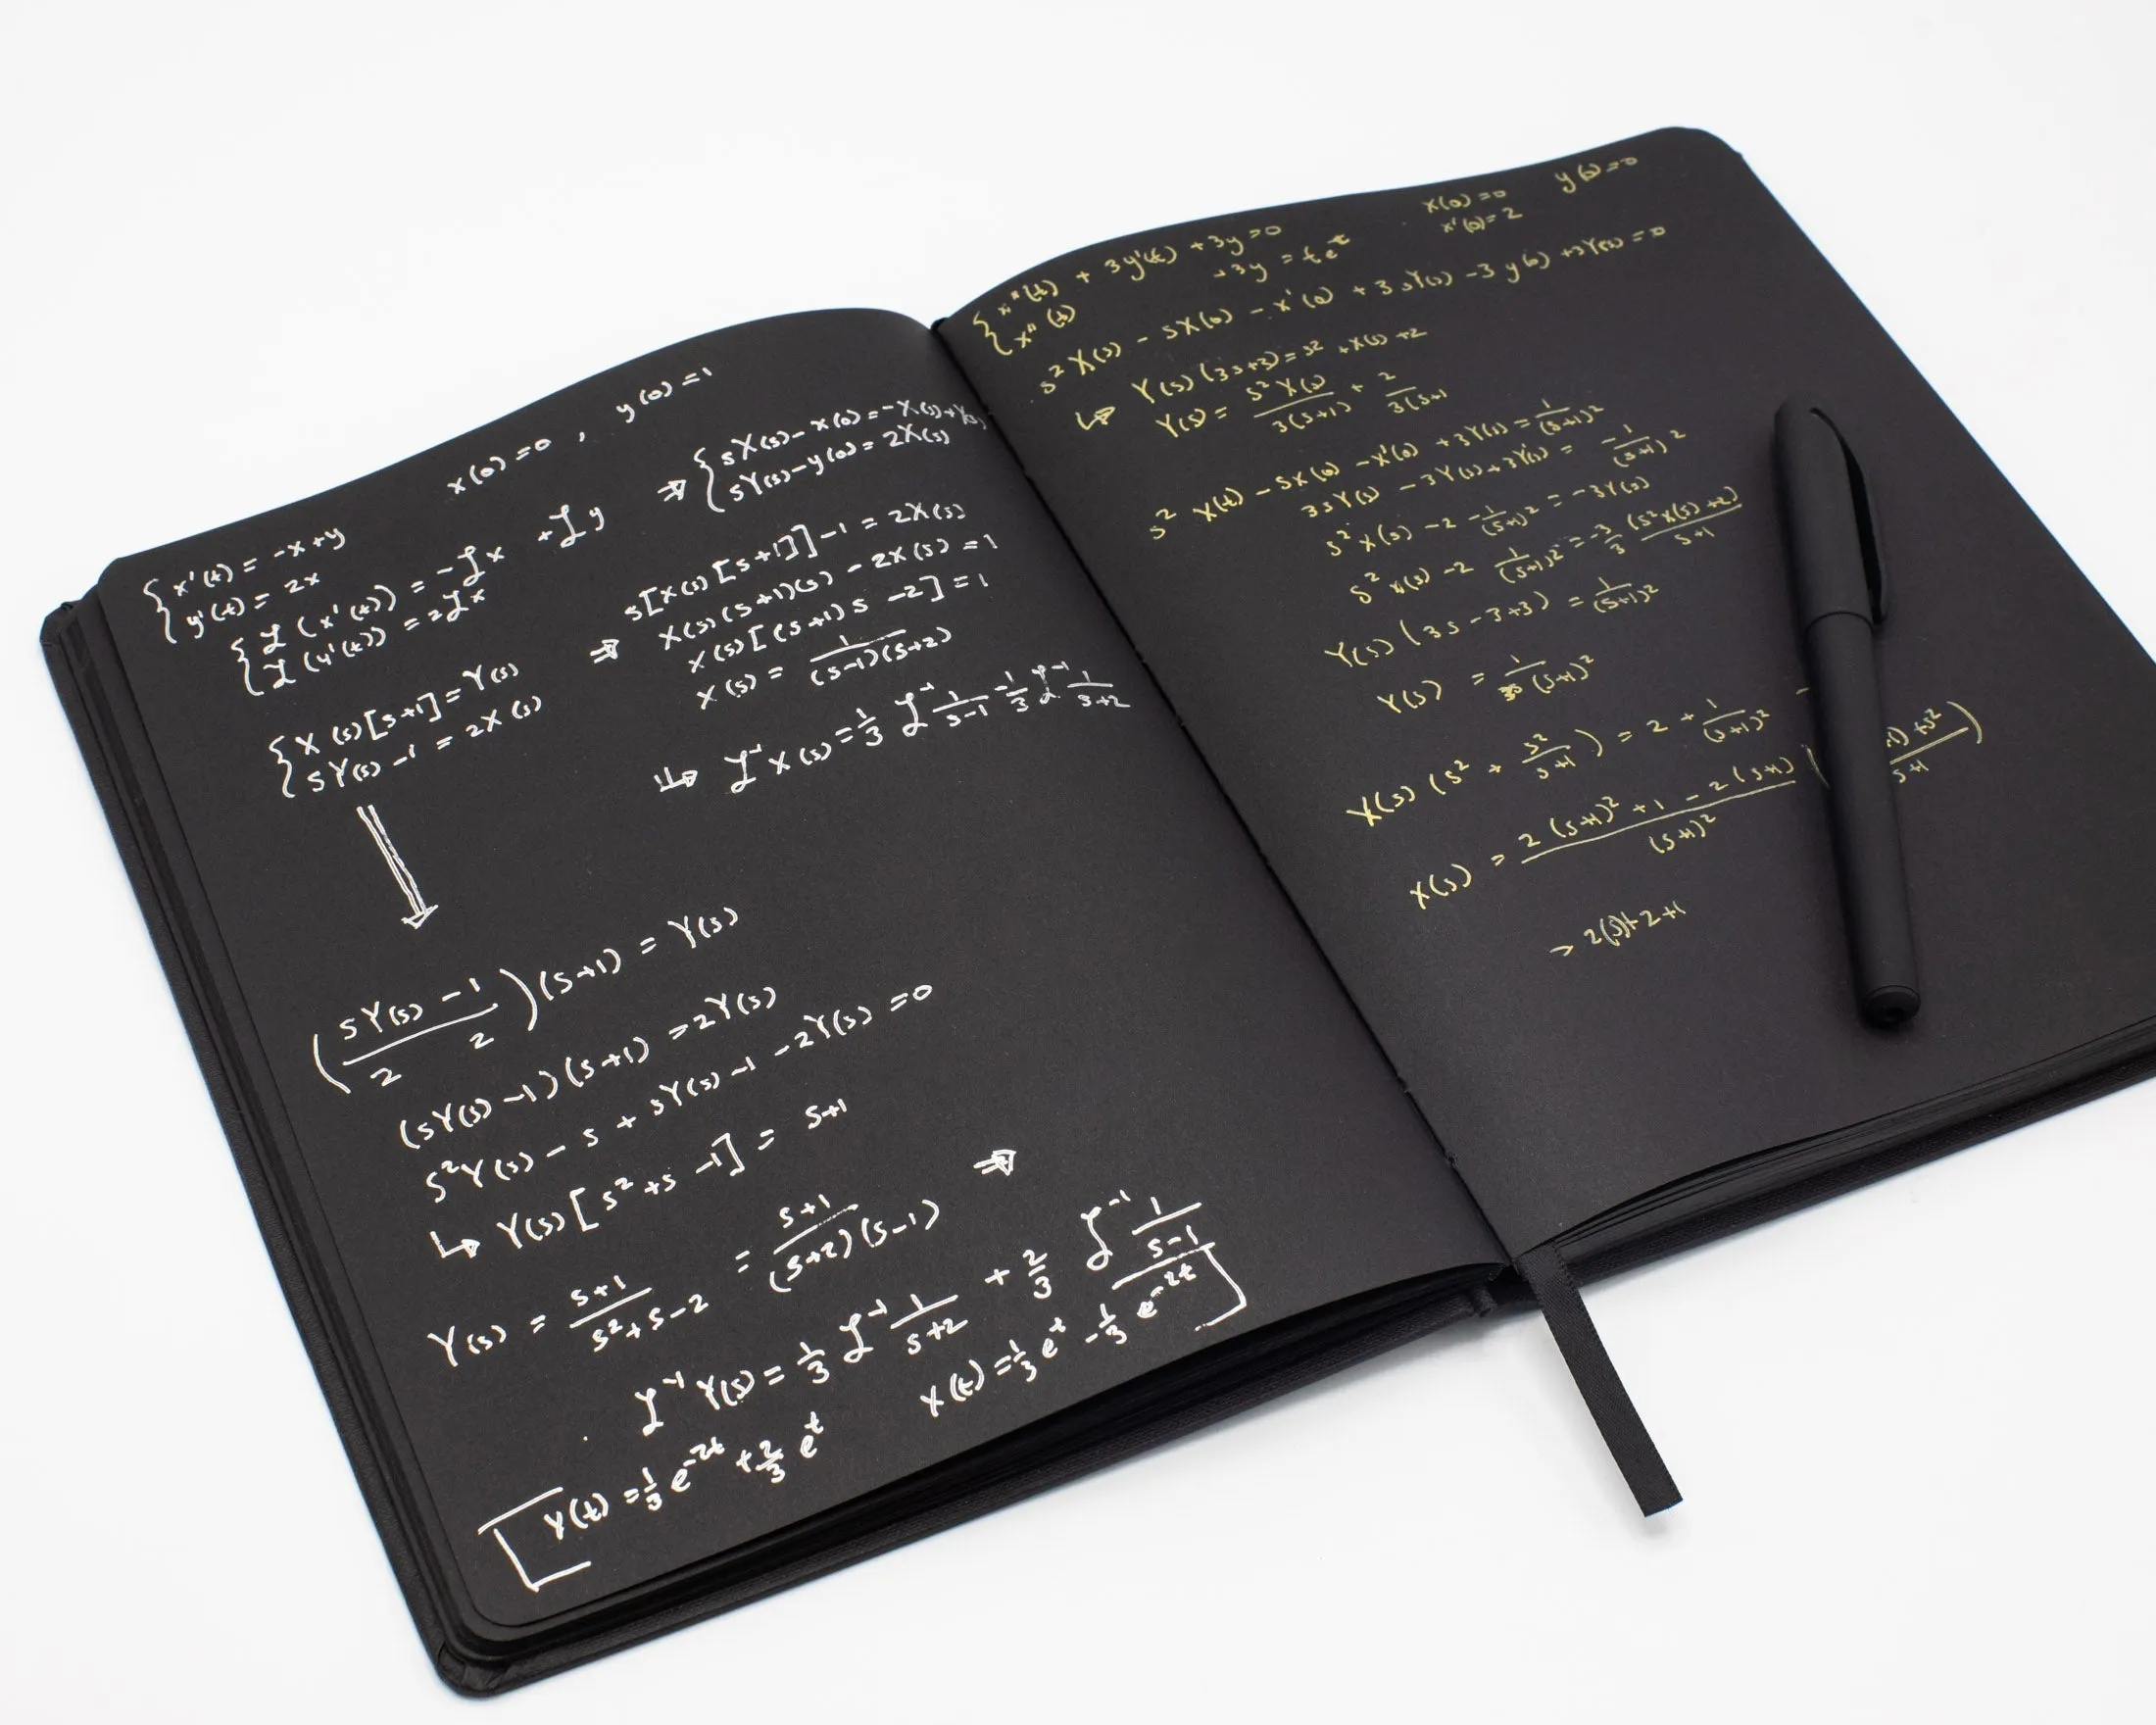 x(0)=0 , y(0)=1
{ x'(t) = -x+y
y'(t) = 2x
{ ℒ(x'(t)) = -ℒx +ℒy
ℒ(y'(t)) = 2ℒx
⇒ { sX(s)-x(0)=-X(s)+Y(s)
sY(s)-y(0)=2X(s)
{ X(s)[s+1]=Y(s)
sY(s)-1 = 2X(s)
⇒ s[X(s)[s+1]]-1 = 2X(s)
X(s)(s+1)(s) - 2X(s) = 1
X(s)[(s+1)s -2] = 1
X(s) = 1/((s-1)(s+2))
↳ ℒ⁻¹X(s) = 1/3 ℒ⁻¹ 1/(s-1) -1/3 ℒ⁻¹ 1/(s+2)
((sY(s) -1)/2 2)(s+1) = Y(s)
(sY(s)-1)(s+1) = 2Y(s)
s²Y(s) - s + sY(s) -1 -2Y(s) = 0
↳ Y(s)[s²+s -1] = s+1
Y(s) = (s+1)/(s²+s-2) = (s+1)/((s+2)(s-1)) ⇒
ℒ⁻¹Y(s) = 1/3 ℒ⁻¹ 1/(s+2) + 2/3 ℒ⁻¹ 1/(s-1)
Y(t) = 1/3 e^-2t + 2/3 e^t
X(t) = 1/3 e^t - 1/3 e^-2t
x(0)=0 y(0)=0
x'(0)=2
{ x''(t) + 3y'(t) +3y=0
x''(t) +3y = te^t
s²X(s) - sX(0) - x'(0) + 3sY(s) -3y(0) +3Y(s) =0
↳ Y(s)(3s+3)=s² +X(s) +2
Y(s) = s²X(s)/3(s+1) + 2/3(s+1
s² X(t) - sX(0) -x'(0) +3Y(s) = 1/(s+1)²
3sY(s) -3Y(s)+3Y(s) = -1/(s+1)²
s²X(s) -2 -1/(s+1)² = -3Y(s)
s²X(s) -2 1/(s+1)² = -3/3 (s²X(s)+2)/s+1
Y(s)(3s-3+3) = 1/(s+1)²
Y(s) = (s+1)²
X(s)(s² + s²/s+1) = 2 + 1/(s+1)² -
X(s) = (2(s+1)² +1 -2(s+1))/(s+1)² ( +s²/s+1)
→ 2(s)+2+1